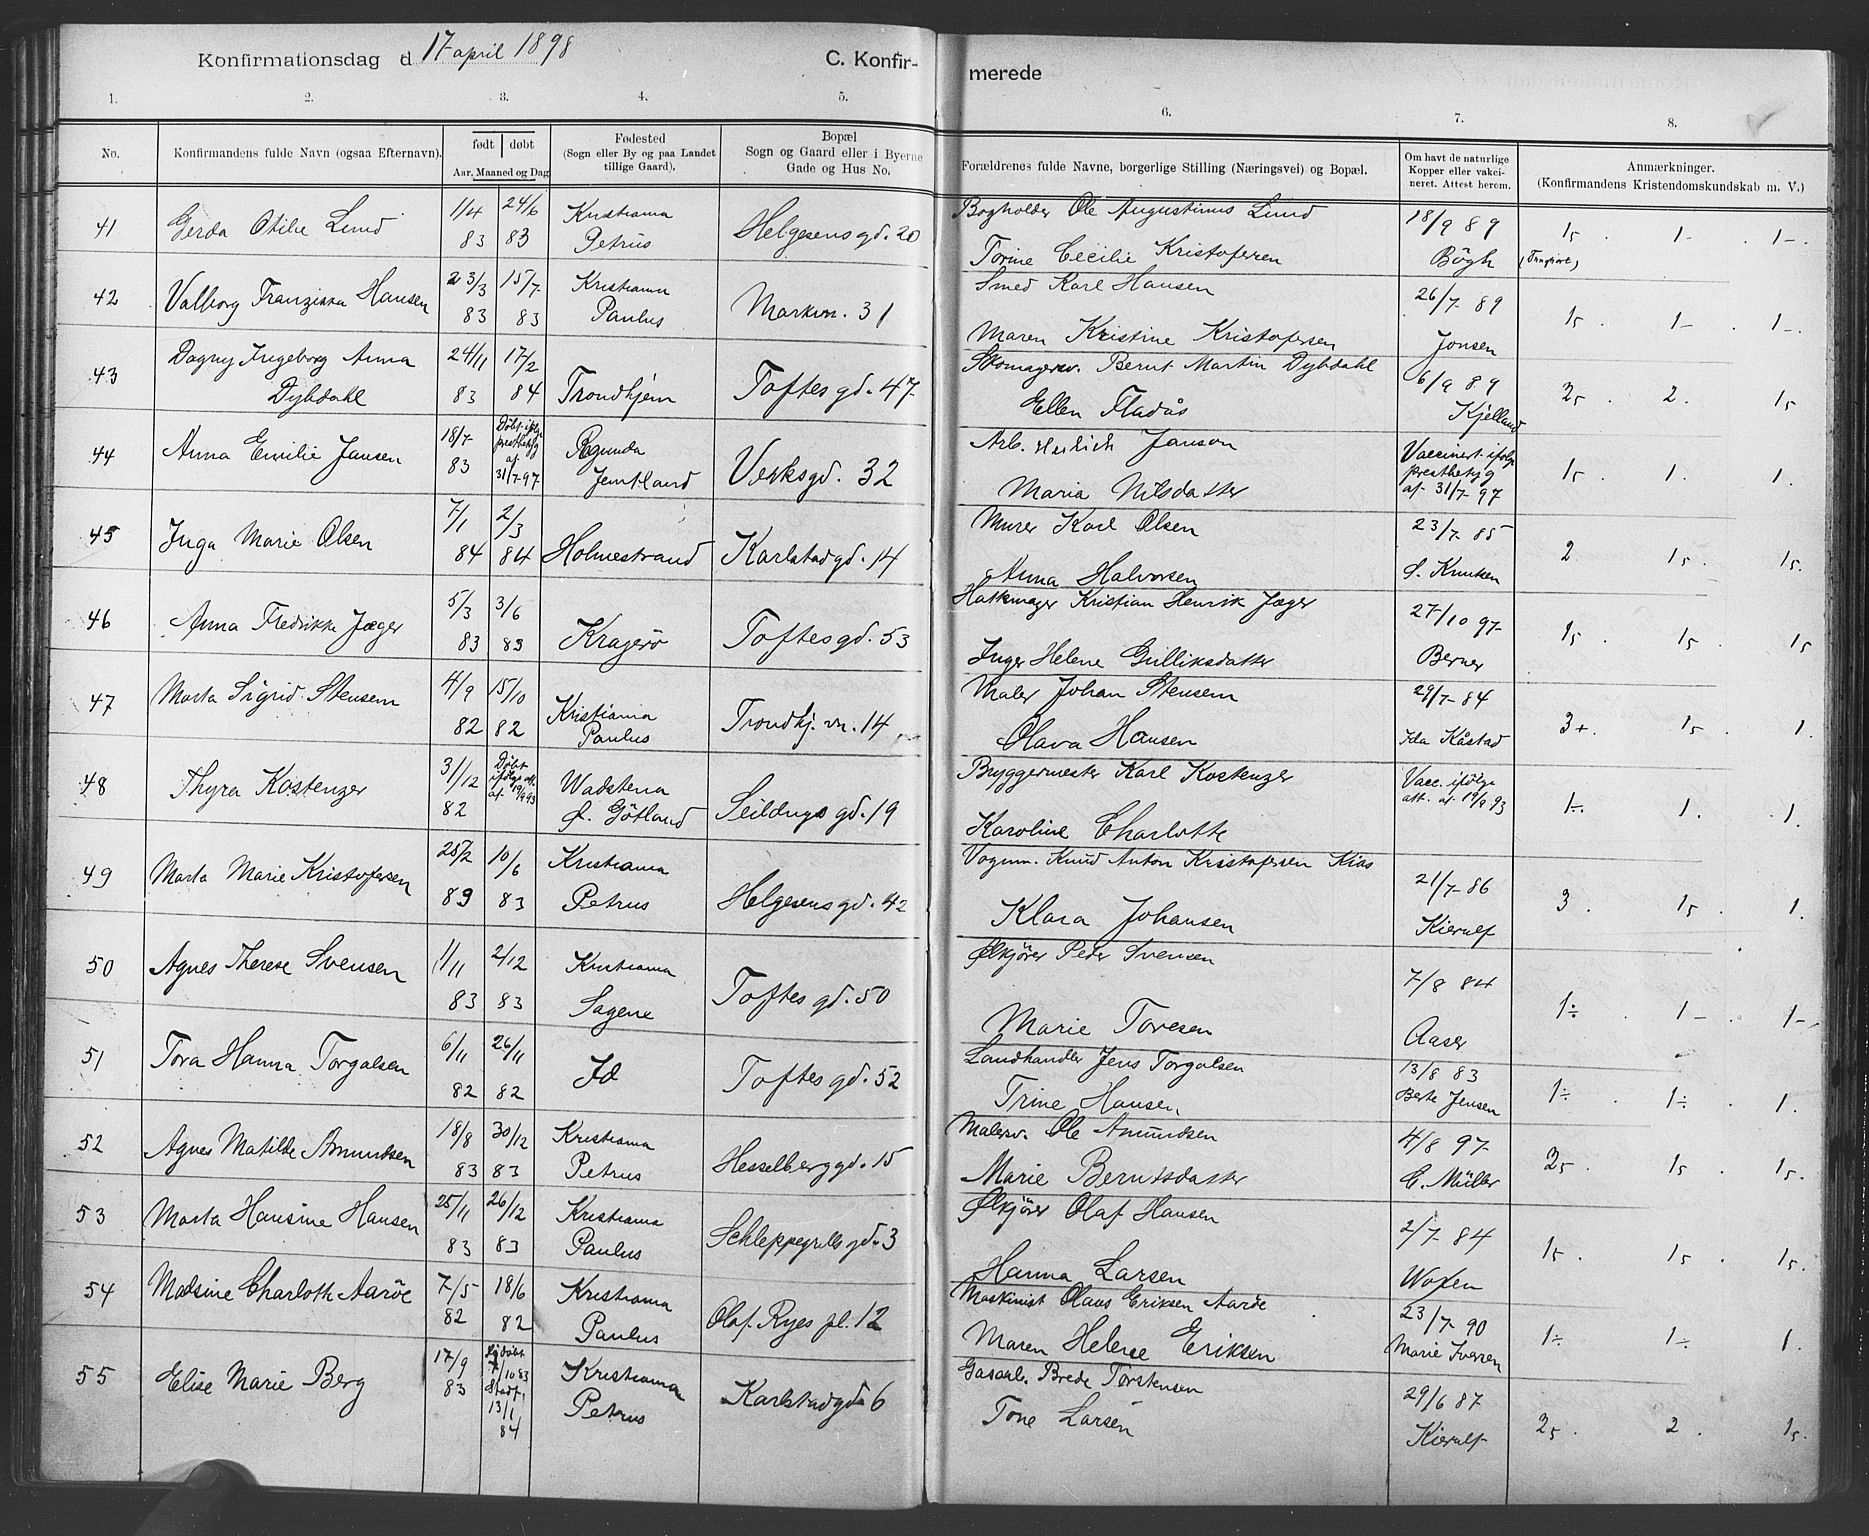 Konfirmationsdag d 17 april 1898 C. Konfir- merede
1. 2. 3. 4. 5. 6. 7. 8.
No. Konfirmandens fulde Navn (ogsaa Efternavn). født døbt Aar, Maaned og Dag Fødested (Sogn eller By og paa Landet tillige Gaard). Bopæl Sogn og Gaard eller i Byerne Gade og Hus No. Forældrenes fulde Navne, borgerlige Stilling (Næringsvei) og Bopæl. Om havt de naturlige Kopper eller vakcineret. Attest herom. Anmærkninger. (Konfirmandens Kristendomskundskab m. V.)
41 Gerda Otilie Lund 1/4 83 24/6 83 Kristiania Petrus Helgesens gd. 20 Bogholder Ole Augustinus Lund 18/9 89 15 . 1- . 1-.
Torine Cecilie Kristofersen Bögh (Tunghört)
42 Valborg Franziska Hansen 23/3 83 15/7 83 Kristiania Paulus Markvn. 31 Smed Karl Hansen 26/7 89 15 . 1- . 1-.
Maren Kristine Kristofersen Jonsen
43 Dagny Ingeborg Anna Dybdahl 24/11 83 17/2 84 Trondhjem Toftes gd. 47 Skomagersv. Bernt Martin Dybdahl 6/9 89 25 . 2. 15
Ellen Fladås Kjelland
44 Anna Emilie Jansen 18/7 83 Døbt ifølge prestbetyg af 31/7 97 Ragunda Jemtland Verksgd. 32 Arb. Janson Vaccinert ifølge prestbetyg af 31/7 97 15 . 1. 1.
Maria Nilsdatter
45 Inga Marie Olsen 7/1 84 2/3 84 Holmestrand Karlstadgd. 14 Murer Karl Olsen 23/7 85 2 15 . 15.
Anna Halvorsen Knutsen
46 Anna Fredrikke Jæger 5/3 83 3/6 83 Kragerö Toftes gd. 53 Hattemager Kristian Henrik Jæger 27/10 97 15 . 15 . 15
Inger Helene Gulliksdatter Berner
47 Marta Sigrid Stensem 4/9 82 15/10 82 Kristiania Paulus Trondhj. vn. 14 Maler Johan Stensem 29/7 84 3+ . 15 . 1.
Olava Hansen Ida Kåstad
48 Thyra Kostenzer 31/12 82 Døbt ifølge att. af 19/9 93 Wadstena Ö. Götland Seildugs gd. 19 Bryggermester Karl Kostenzer Vacc. ifølge att. af 19/9 93 1÷ 1. .1.
Karoline Charlotte
49 Marta Marie Kristofersen 25/2 83 10/6 83 Kristiania Petrus Helgesens gd. 42 Vognm. Knud Anton Kristofersen 21/7 86 3 . 15 . 1.
Klara Johansen Kierulf
50 Agnes Therese Svensen 1/11 83 2/12 83 Kristiania Sagene Toftes gd. 50 Ølkjörer Peder Svensen 7/8 84 1÷ . 1- . 1-
Marie Toresen Aaser
51 Tora Hanna Torgalsen 6/11 82 26/11 82 Id Toftes gd. 52 Landhandler Jens Torgalsen 13/8 83 1÷ . 1÷ . 1.
Trine Hansen, Berte Jensen
52 Agnes Matilde Amundsen 18/8 83 30/12 83 Kristiania Petrus Hesselberggd. 15 Malersv. Ole Amundsen 4/8 97 25 . 15 . 15.
Marie Berntsdatter C. Müller
53 Marta Hansine Hansen 25/11 83 26/12 83 Kristiania Paulus Schleppegrells gd. 3 Ølkjörer Olaf Hansen 2/7 84 15 . 15 . 15.
Hanna Larsen
54 Madsine Charloth Aaröe 7/5 82 18/6 82 Kristiania Paulus Olaf Ryes pl. 12 Maskinist Olaus Eriksen Aaröe 23/7 90 1÷ . 1÷ 1.
Maren Helene Eriksen Marie Iversen
55 Elise Marie Berg 17/9 83 Hjdøbt 7/10 83 Stadf. 13/1 84 Kristiania Petrus Karlstadgd. 6 Gasarb. Brede Torstensen 29/6 87 25 . 2 . 15.
Tone Larsen Kierulf